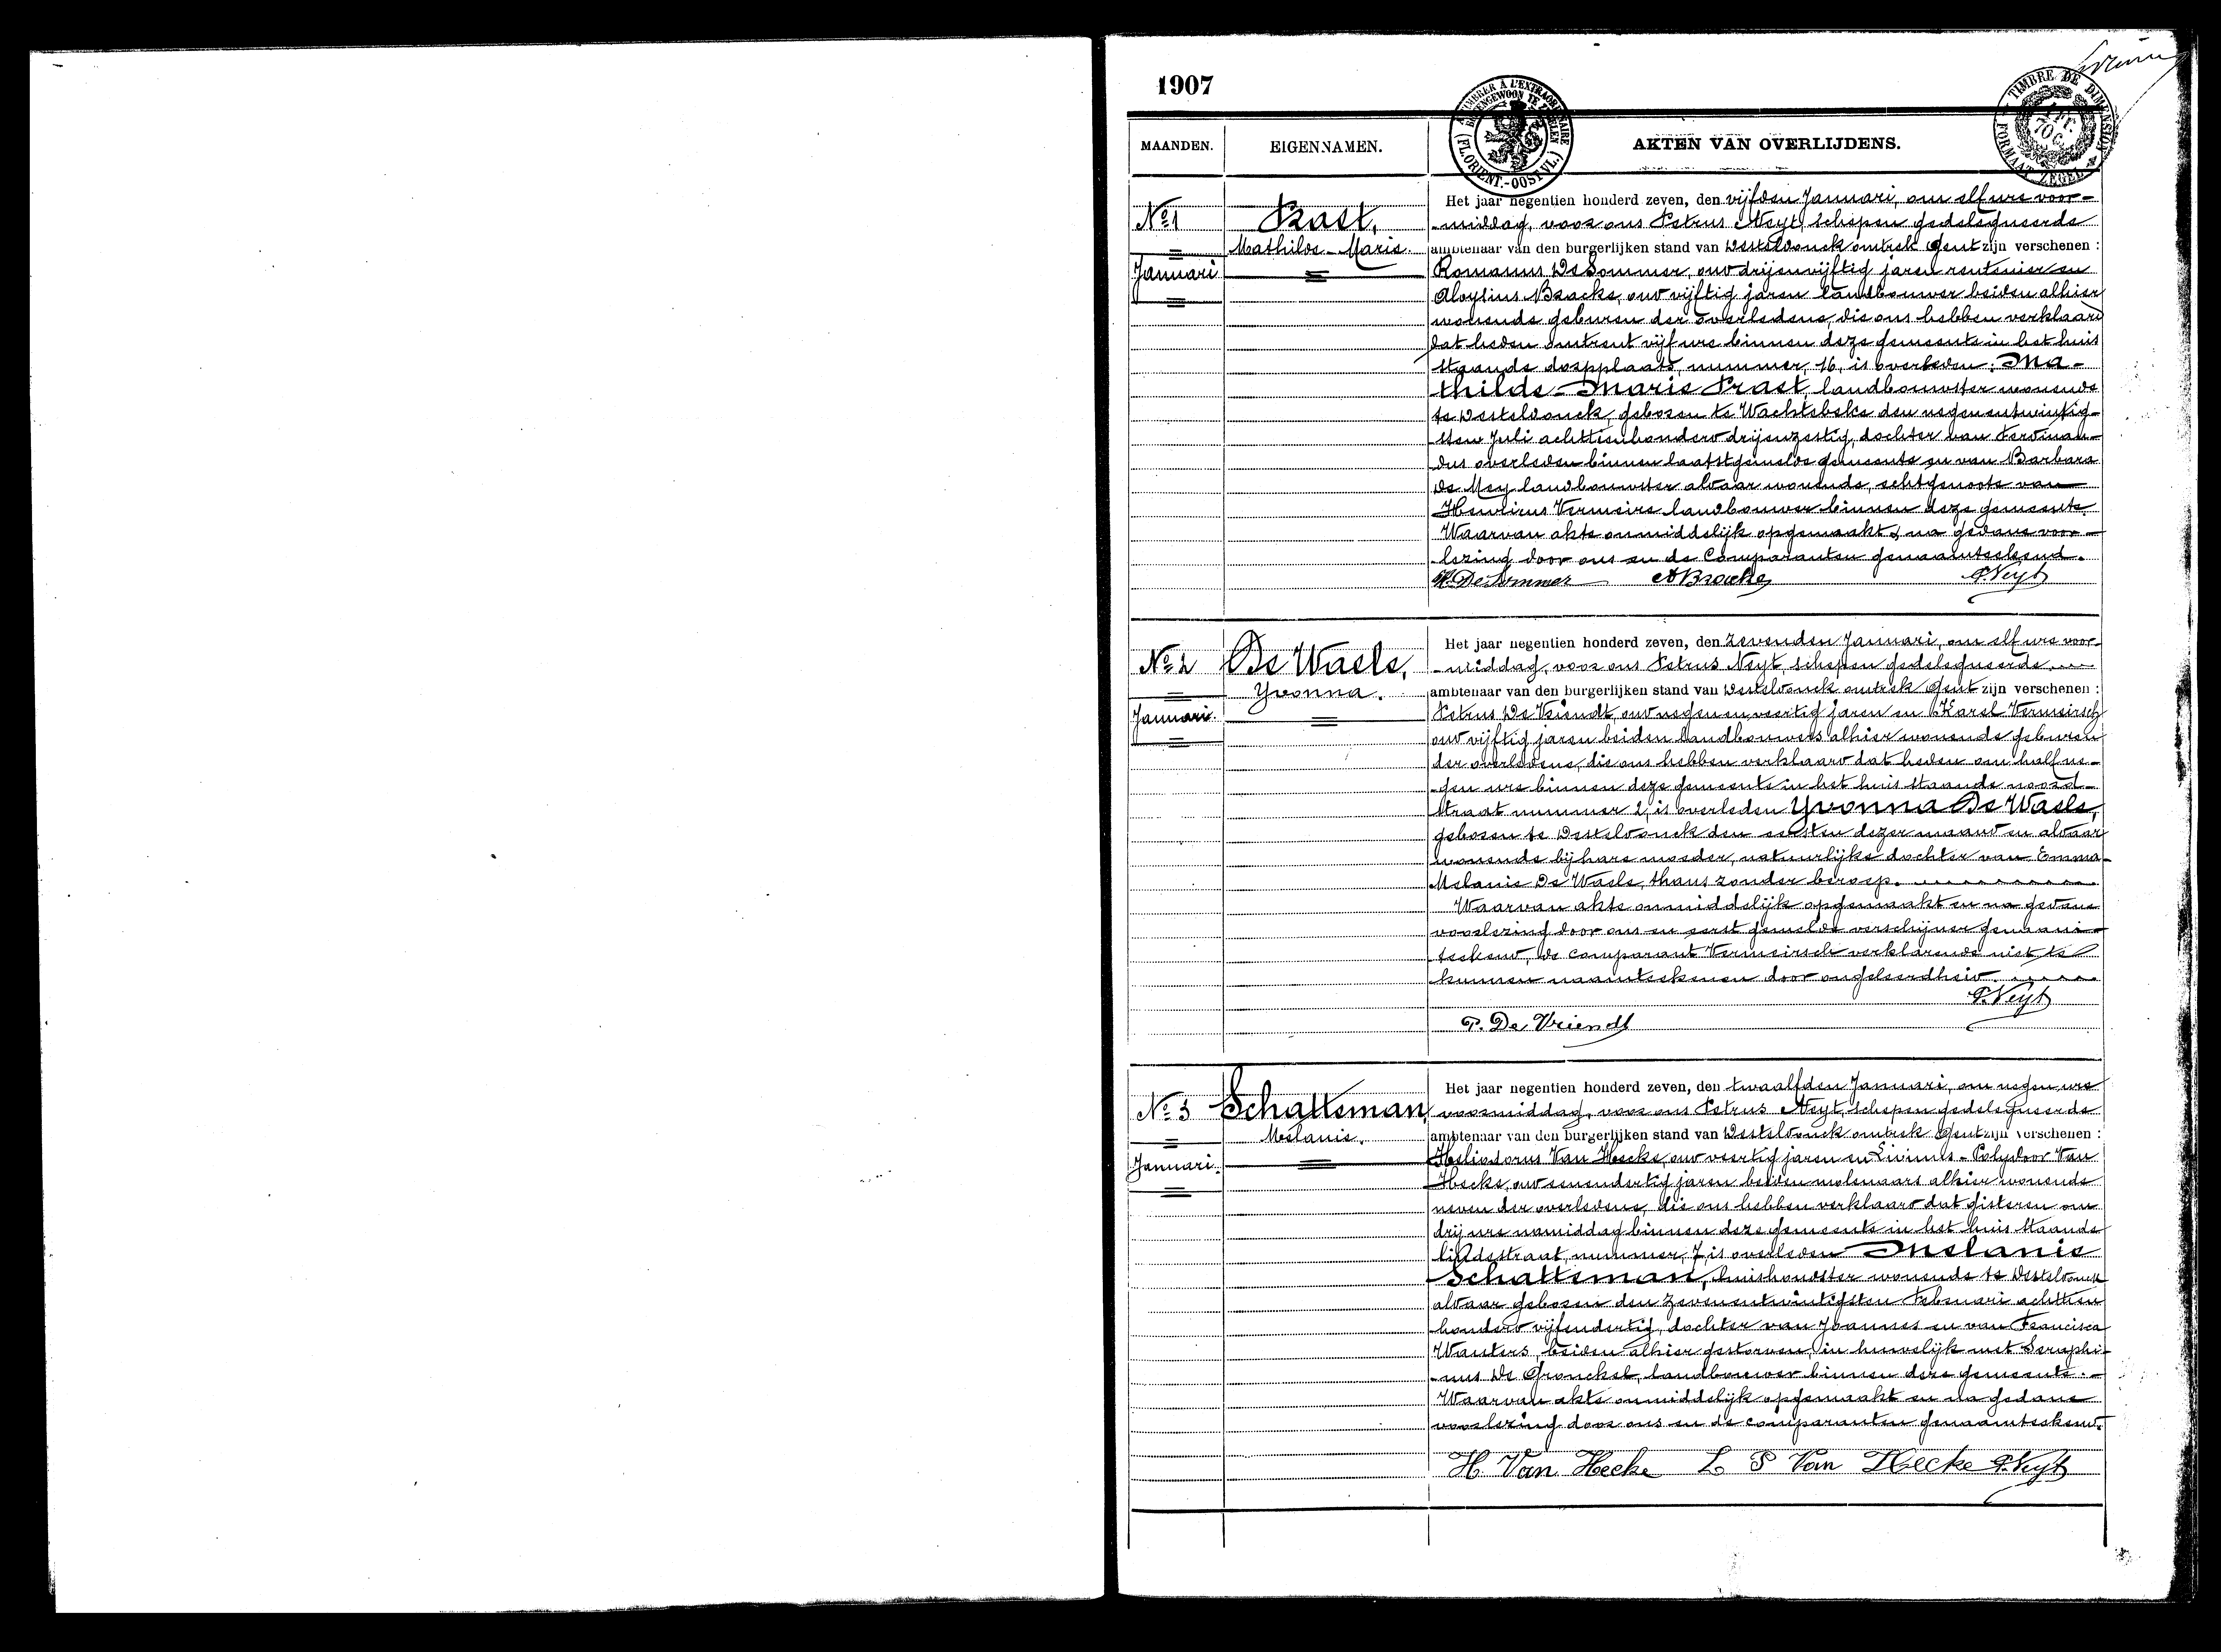 1907
MAANDEN.
EIGENNAMEN.
AKTEN VAN OVERLIJDENS.
TIMBRE DE DIMENSION
FORMAAT ZEGEL
1 FR.
70 C.
(FLORIENT.-OOST VL.)
Nº 1
Januari
Prast,
Mathilde-Marie.
Het jaar negentien honderd zeven, den vijfden Januari, om elf ure voor-
-middag, voor ons Petrus Neyt, schepen gedelegueerde
ambtenaar van den burgerlijken stand van Desteldonck omtrek Gent zijn verschenen :
Romanus De Sommer, oud drijenvijftig jaren rentenier en
Aloysius Bracke, oud vijftig jaren landbouwer beiden alhier
wonende geburen der overledene, die ons hebben verklaard
dat heden omtrent vijf ure binnen deze gemeente in het huis
staande dorpplaats, nummer 16, is overleden: Ma-
thilde-Marie Prast, landbouwster wonende
te Desteldonck, geboren te Wachtebeke den negenentwintig-
sten Juli achttienhonderd drijenzestig, dochter van Ferdinan-
dus overleden binnen laatstgemelde gemeente en van Barbara
De Mey landbouwster aldaar wonende, echtgenoote van
Henricus Vermeire landbouwer binnen deze gemeente.
Waarvan akte onmiddelijk opgemaakt & na gedane voor-
lezing door ons en de Comparanten genaamteekend.
R. De Sommer A Bracke P. Neyt
Nº 2
Januari.
De Waele,
Yvonna.
Het jaar negentien honderd zeven, den zevenden Januari, om elf ure voor-
-middag, voor ons Petrus Neyt, schepen gedelegueerde
ambtenaar van den burgerlijken stand van Desteldonck omtrek Gent zijn verschenen :
Petrus De Vriendt, oud negenenveertig jaren en Karel Vermeirsch
oud vijftig jaren beiden landbouwers alhier wonende geburen
der overledene, die ons hebben verklaard dat heden om half ne-
-gen ure binnen deze gemeente in het huis staande noord-
straat nummer 2, is overleden Yvonna De Waele,
geboren te Desteldonck den eersten dezer maand en aldaar
wonende bij hare moeder, natuurlijke dochter van Emma-
Melanie De Waele, thans zonder beroep.
Waarvan akte onmiddelijk opgemaakt en na gedane
voorlezing door ons en eerst gemelde verschijner genaam-
teekend, de comparant Vermeirsch verklarende niet te
kunnen naamteekenen door ongeleerdheid
P. Neyt
P. De Vriendt
Nº 3
Januari.
Schatteman,
Melanie.
Het jaar negentien honderd zeven, den twaalfden Januari, om negen ure
voormiddag, voor ons Petrus Neyt, schepen gedelegueerde
ambtenaar van den burgerlijken stand van Desteldonck omtrek Gent zijn verschenen :
Heliodorus Van Hecke, oud veertig jaren en Livinus-Polydoor Van
Hecke, oud eenendertig jaren beiden molenaars alhier wonende
neven der overledene, die ons hebben verklaard dat gisteren om
drij ure namiddag binnen deze gemeente in het huis staande
lindestraat, nummer, 7 is overleden Melanie
Schatteman, huishoudster wonende te Desteldonck
aldaar geboren den zevenentwintigsten Februari achttien
honderd vijfendertig, dochter van Joannes en van Francisca
Wauters, beiden alhier gestorven, in huwelijk met Seraphi-
-nus De Gronckel, landbouwer binnen deze gemeente.-
Waarvan akte onmiddelijk opgemaakt en na gedane
voorlezing door ons en de comparanten genaamteekend.
H. Van Hecke L P Van Hecke P. Neyt